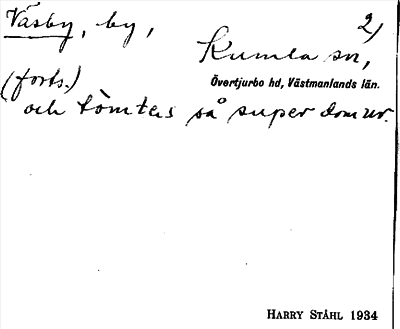 Väsby, by, 2)
Kumla sn,
Övertjurbo hd, Västmanlands län.
(forts.)
och tömtes så super dom ur.
HARRY STÅHL 1934